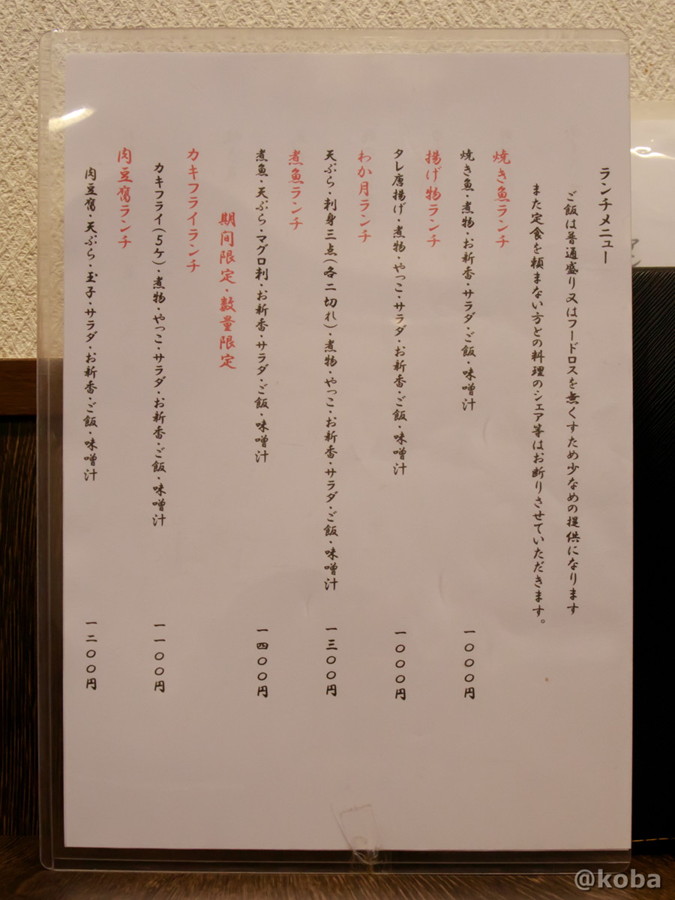 ランチメニュー
ご飯は普通盛り又はフードロスを無くすため少なめの提供になります
また定食を頼まない方との料理のシェア等はお断りさせていただきます。
焼き魚ランチ
焼き魚・煮物・お新香・サラダ・ご飯・味噌汁 一〇〇〇円
揚げ物ランチ
タレ唐揚げ・煮物・やっこ・サラダ・お新香・ご飯・味噌汁 一〇〇〇円
わか月ランチ
天ぷら・刺身三点(各二切れ)・煮物・やっこ・お新香・サラダ・ご飯・味噌汁 一三〇〇円
煮魚ランチ
煮魚・天ぷら・マグロ刺・お新香・サラダ・ご飯・味噌汁 一四〇〇円
期間限定・数量限定
カキフライランチ
カキフライ(5ケ)・煮物・やっこ・サラダ・お新香・ご飯・味噌汁 一一〇〇円
肉豆腐ランチ
肉豆腐・天ぷら・玉子・サラダ・お新香・ご飯・味噌汁 一二〇〇円
@koba